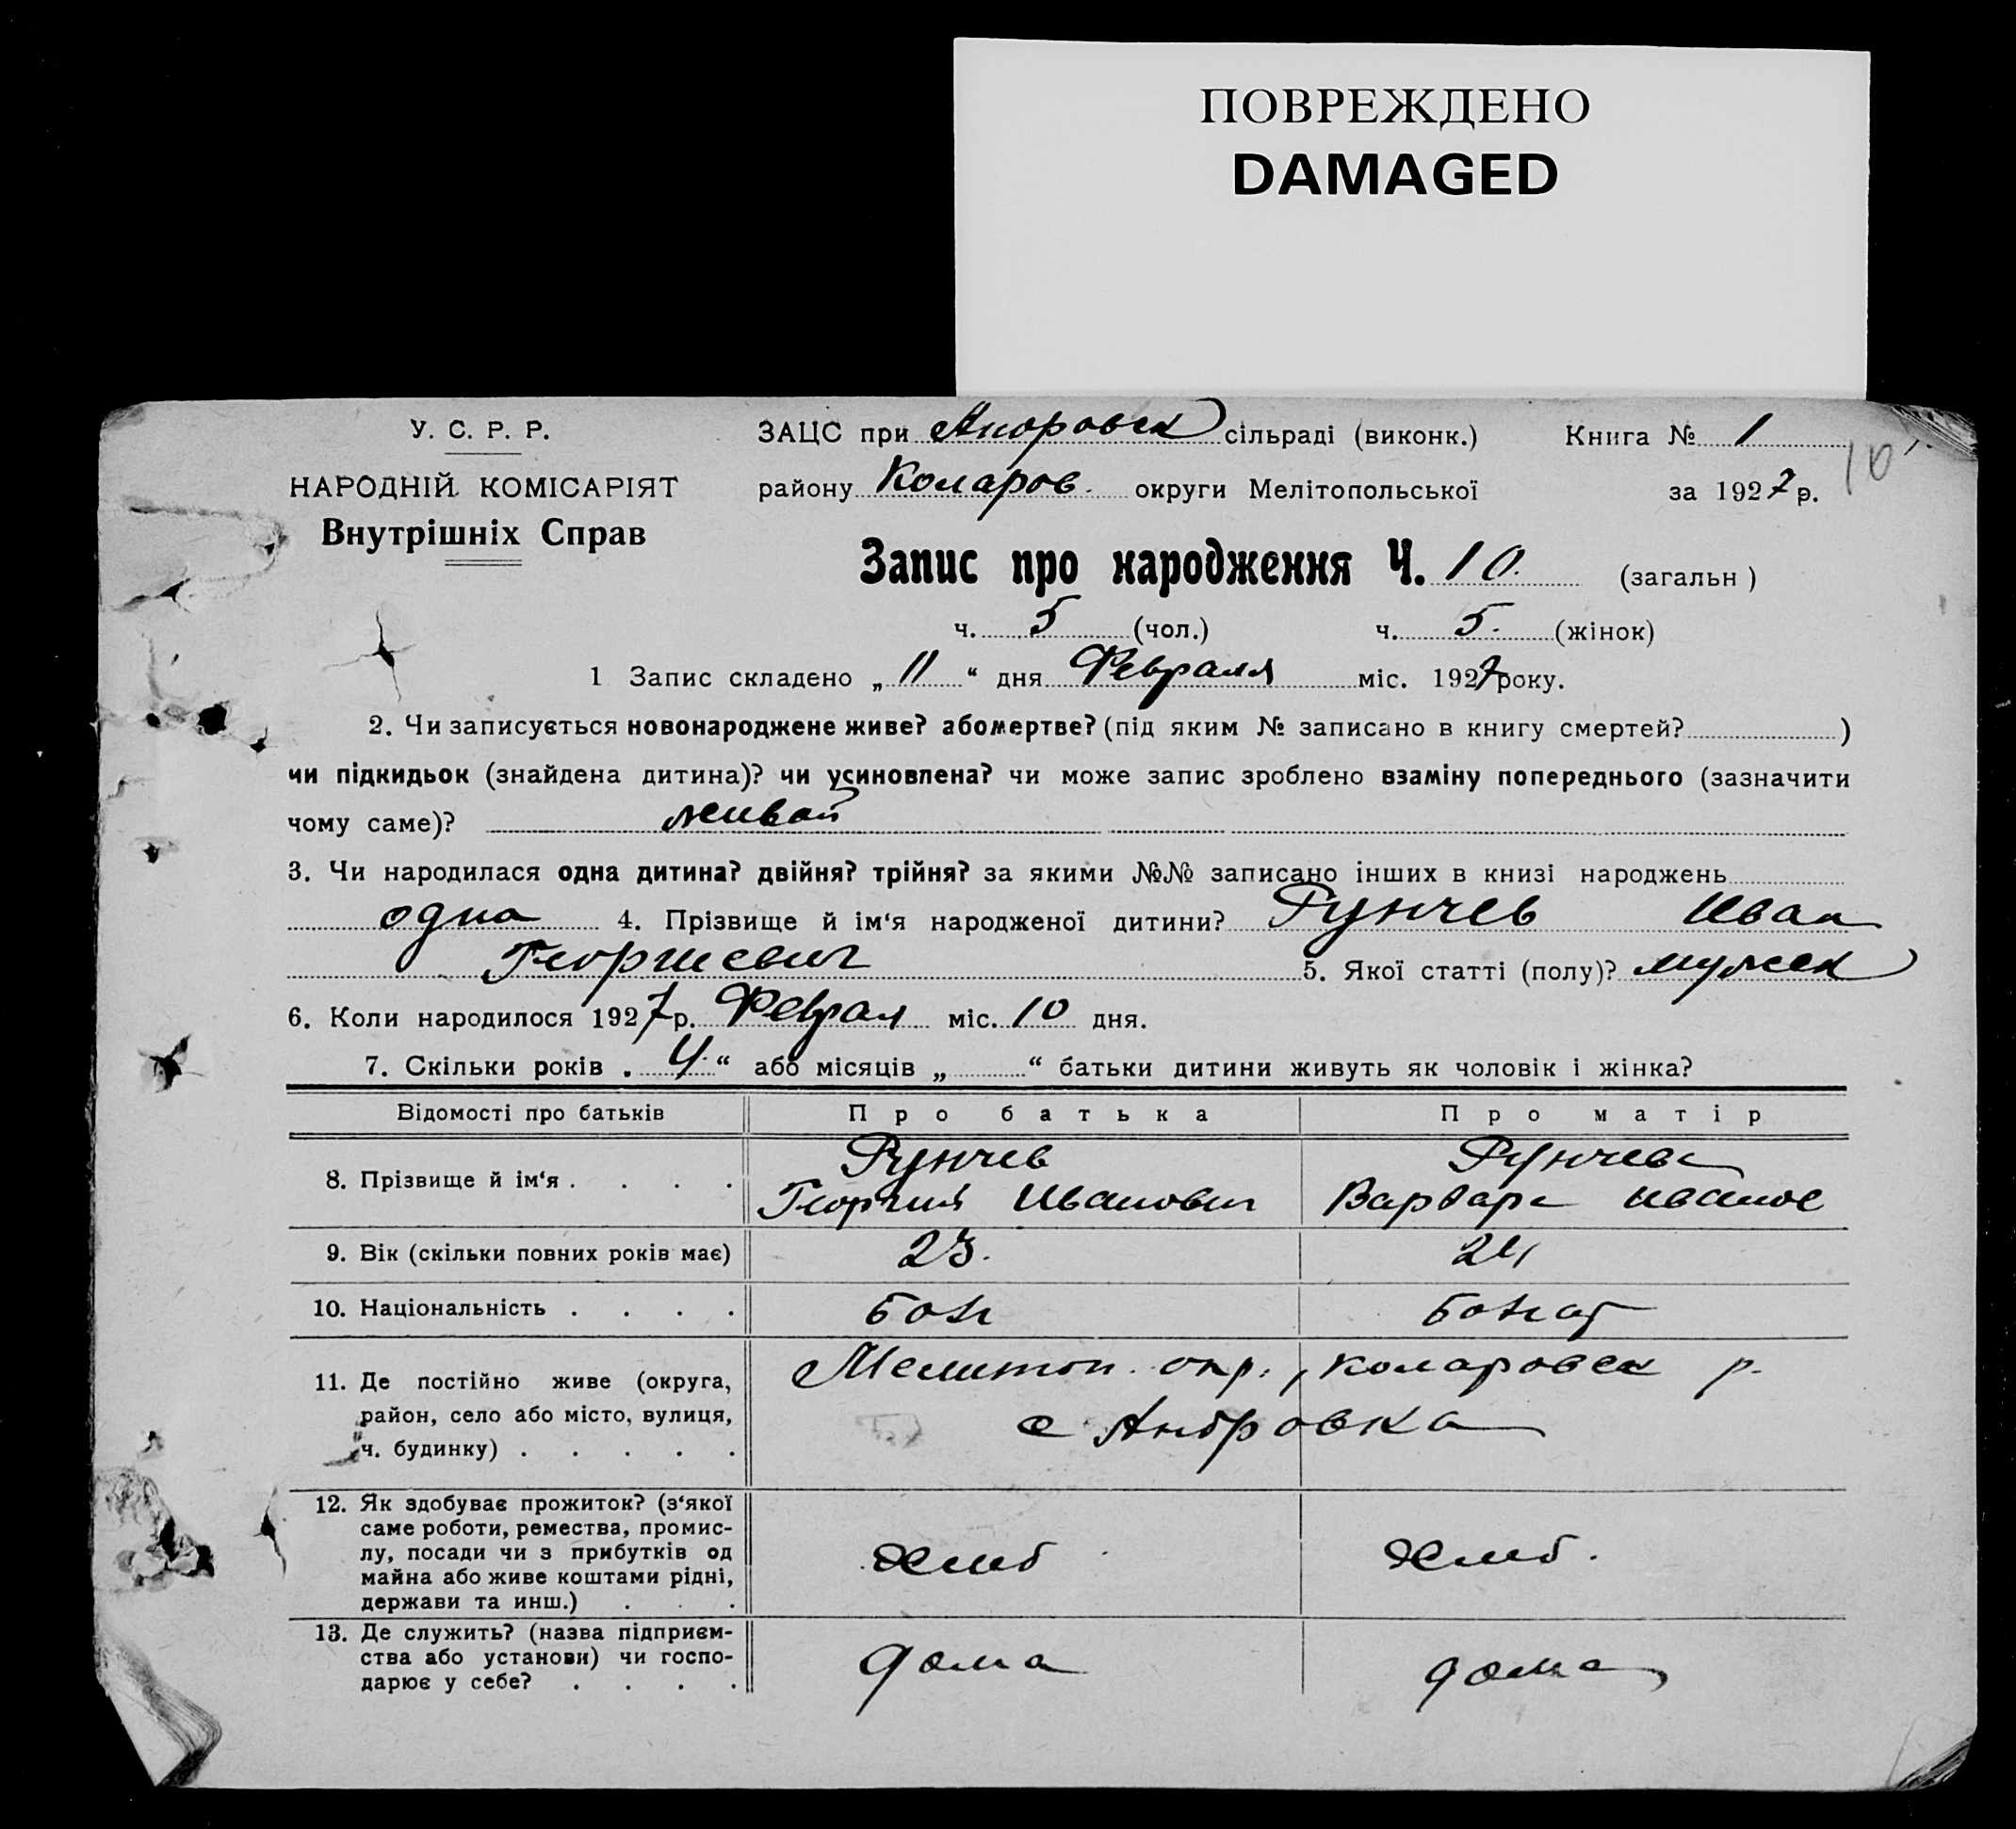 ПОВРЕЖДЕНО
DAMAGED
У. С. Р. Р.
НАРОДНІЙ КОМІСАРІЯТ
Внутрішніх Справ
ЗАЦС при Андровск сільраді (виконк.) Книга № 1
району Коларов. округи Мелітопольської за 1927 р. 10
Запис про народження Ч. 10. (загальн )
ч. 5 (чол.) ч. 5. (жінок)
1 Запис складено „ 11 “ дня Февраля міс. 1927 року.
2. Чи записується новонароджене живе? або мертве? (під яким № записано в книгу смертей? )
чи підкидьок (знайдена дитина)? чи усиновлена? чи може запис зроблено взаміну попереднього (зазначити
чому саме)? живой
3. Чи народилася одна дитина? двійня? трійня? за якими №№ записано інших в книзі народжень
одна 4. Прізвище й ім‘я народженої дитини? Рунчев Иван
Георгиевич 5. Якої статті (полу)? мужск
6. Коли народилося 1927 р. Феврал міс. 10 дня.
7. Скільки років „ 4 “ або місяців „ “ батьки дитини живуть як чоловік і жінка?
Відомості про батьків Про батька Про матір
8. Прізвище й ім‘я . . . . Рунчев Георгий Иванович Рунчева Варвара Иванов
9. Вік (скільки повних років має) 23. 24
10. Національність . . . .
11. Де постійно живе (округа, Мелитоп. окр., Коларовск р.
район, село або місто, вулиця, с Андровка
ч. будинку) . . . . .
12. Як здобуває прожиток? (з‘якої
саме роботи, ремества, промис-
лу, посади чи з прибутків од хлеб хлеб.
майна або живе коштами рідні,
держави та инш.) . . .
13. Де служить? (назва підприєм-
ства або установи) чи госпо- дома дома
дарює у себе? . . . .